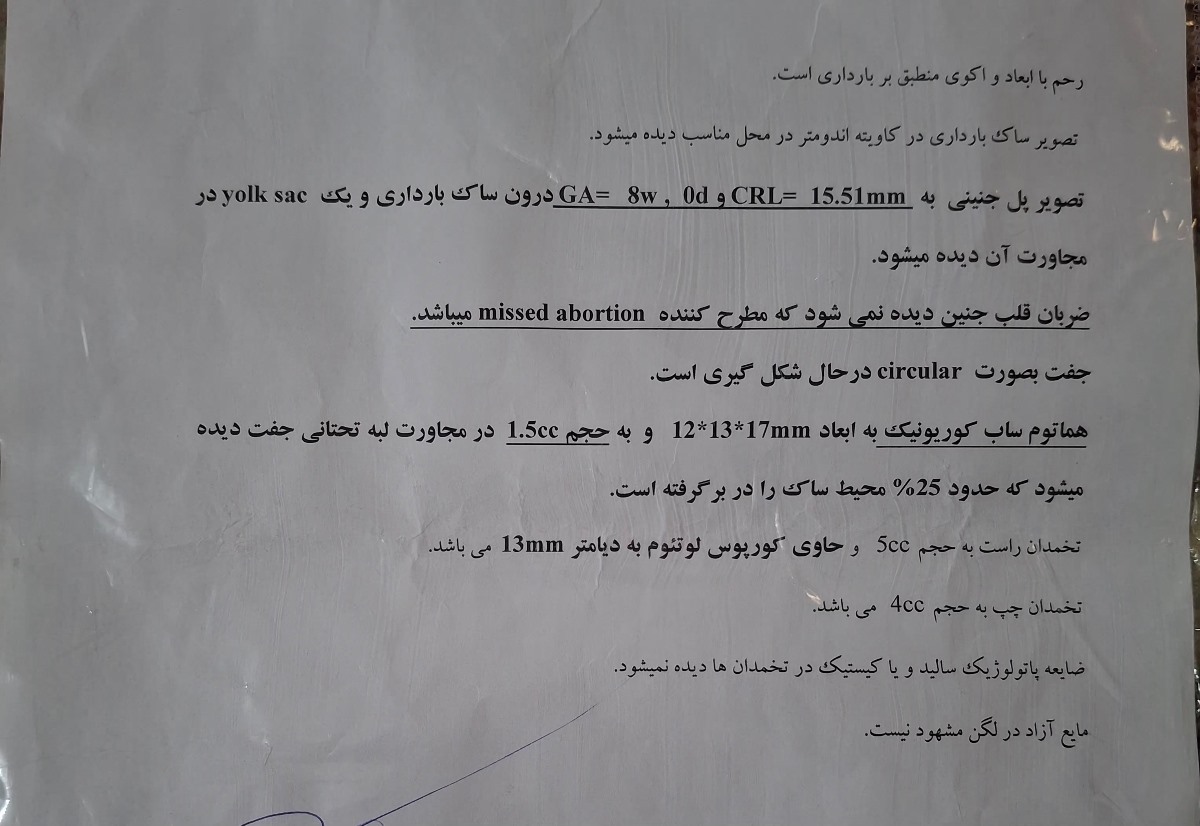 رحم با ابعاد و اکوی منطبق بر بارداری است.
تصویر ساک بارداری در کاویته اندومتر در محل مناسب دیده میشود.
تصویر پل جنینی به CRL= 15.51mm و GA= 8w , 0d درون ساک بارداری و یک yolk sac در
مجاورت آن دیده میشود.
ضربان قلب جنین دیده نمی شود که مطرح کننده missed abortion میباشد.
جفت بصورت circular درحال شکل گیری است.
هماتوم ساب کوریونیک به ابعاد 12*13*17mm و به حجم 1.5cc در مجاورت لبه تحتانی جفت دیده
میشود که حدود 25% محیط ساک را در برگرفته است.
تخمدان راست به حجم 5cc و حاوی کورپوس لوتئوم به دیامتر 13mm می باشد.
تخمدان چپ به حجم 4cc می باشد.
ضایعه پاتولوژیک سالید و یا کیستیک در تخمدان ها دیده نمیشود.
مایع آزاد در لگن مشهود نیست.